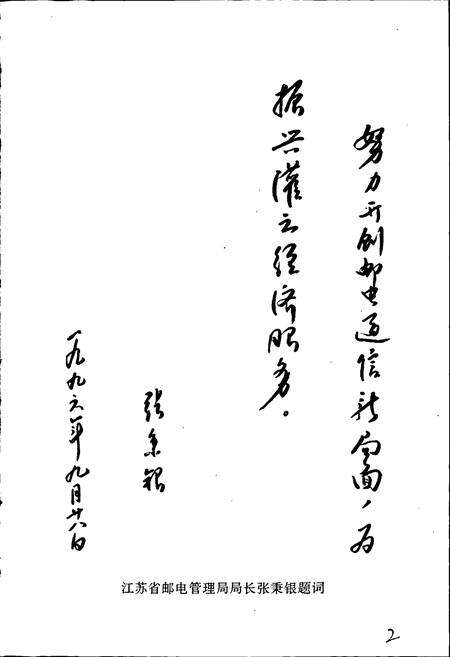 努力开创邮电通信新局面，为
振兴灌云经济服务。
张秉银
一九九六年九月廿八日
江苏省邮电管理局局长张秉银题词
2